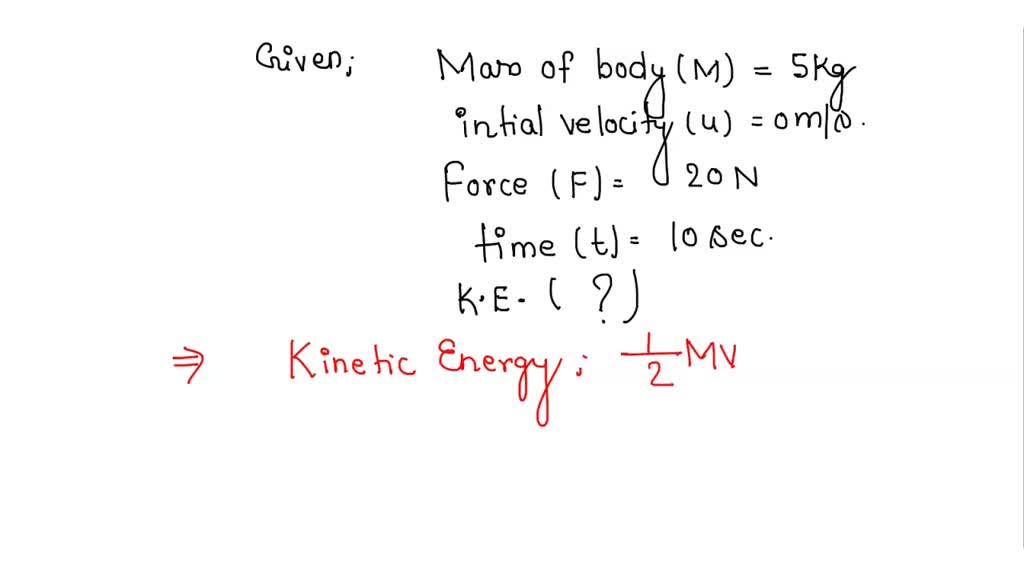 Given; Mass of body (M) = 5kg
intial velocity (u) = 0 m/s.
Force (F) = 20 N
time (t) = 10 sec.
K.E. - ( ? )
⇒ Kinetic Energy; 1/2 MV